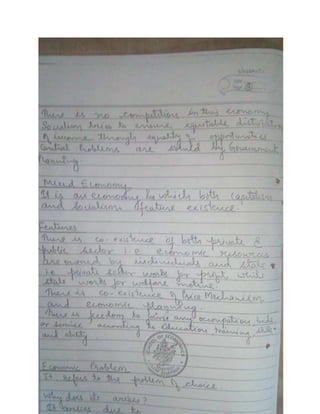 There is no competition in this economy
Socialism tries to ensure equitable distribution
of income through equality of opportunities
Central Problems are solved by Government
Planning.
Mixed Economy
It is an economy in which both Capitalism
and Socialism feature existence
Features
There is co-existence of both private &
public sector i.e economic resources
are owned by individuals and state
i.e private sector works for profit while
state works for welfare motive.
There is co-existence of Price Mechanism
and economic planning
There is freedom to joins any occupation, trade
or service according to education training skill
and ability
Economic Problem
It refers to the problem of choice
Why does it arises?
It arises due to